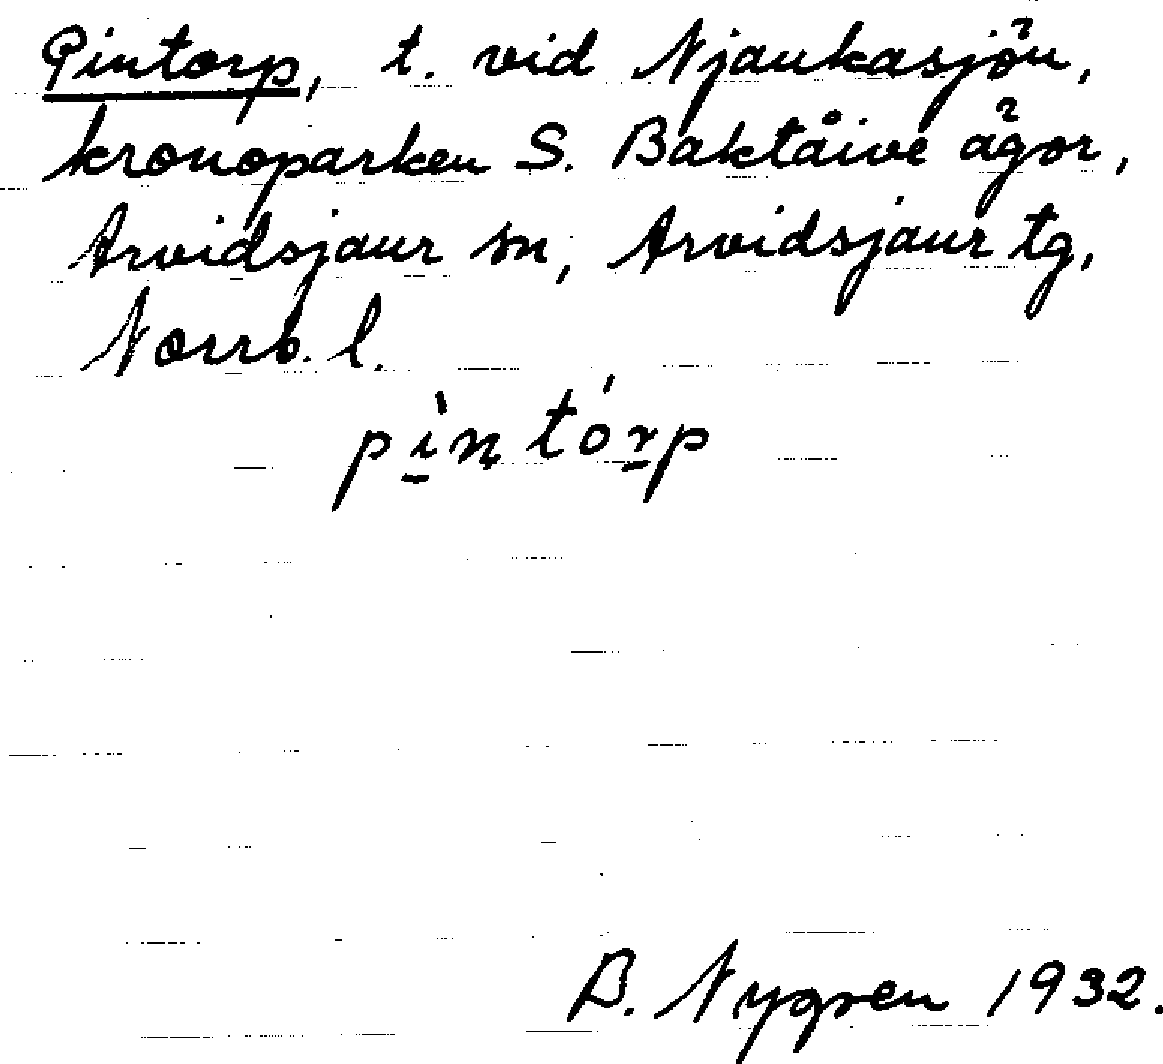 Pintorp, t. vid Njaukasjön,
kronoparken S. Baktåive ägor,
Arvidsjaur sn, Arvidsjaur tg,
Norrb. l.
pìṉtó̱rp
B. Nygren 1932.